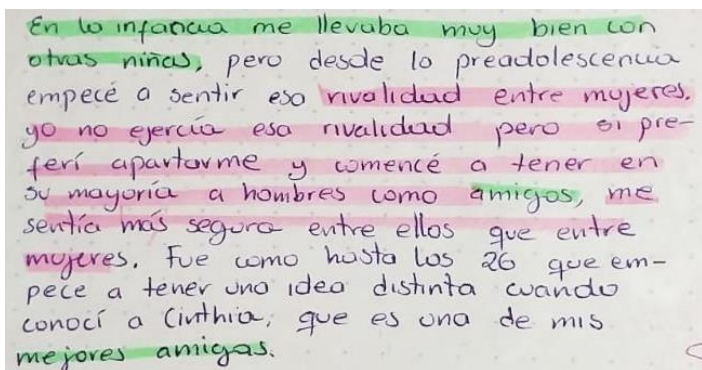 En la infancia me llevaba muy bien con
otras niñas, pero desde la preadolescencia
empecé a sentir esa rivalidad entre mujeres.
yo no ejercía esa rivalidad pero si pre-
ferí apartarme y comencé a tener en
su mayoría a hombres como amigos, me
sentía más segura entre ellos que entre
mujeres. Fue como hasta los 26 que em-
pece a tener una idea distinta cuando
conocí a Cinthia, que es una de mis
mejores amigas.